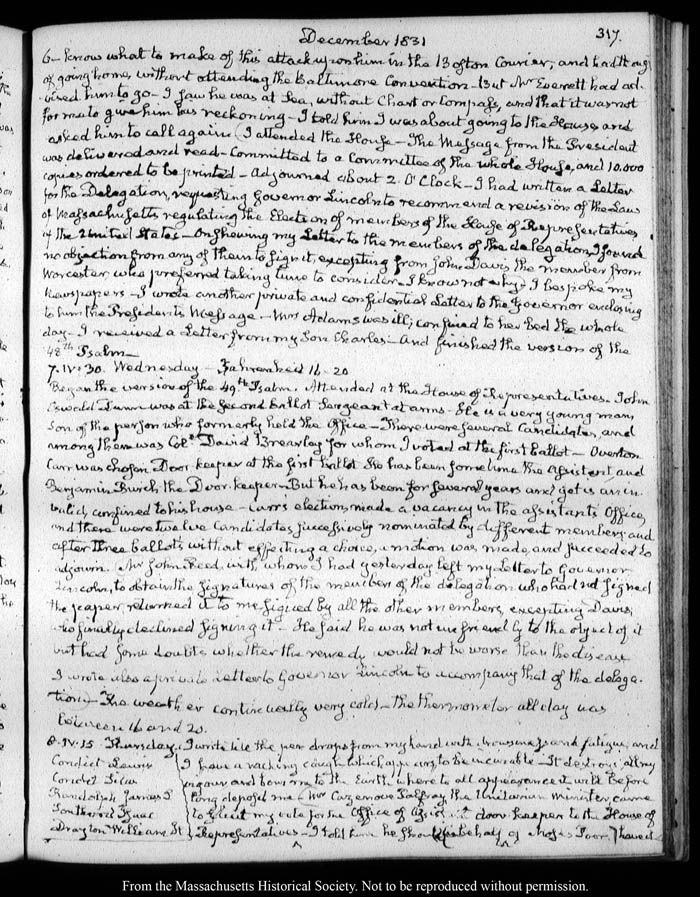 December 1831
317.
6- know what to make of this attack upon him in the Boston Courier, and had thoug
of going home, without attending the Baltimore Convention - But Mr Everett had ad-
vised him to go - I saw he was at Sea, without Chart or Compass, and that it was not
for me to give him his reckoning - I told him I was about going to the House and
asked him to call again. I attended the House - The Message from the President
was delivered and read - Committed to a Committee of the whole House, and 10,000
copies ordered to be printed - Adjourned about 2. O'Clock - I had written a Letter
for the Delegation, requesting Governor Lincoln to recommend a revision of the Laws
of Massachusetts regulating the Election of members of the House of Representatives
of the United States - On shewing my Letter to the members of the delegation, I found
no objection from any of them to sign it, excepting from John Davis, the member from
Worcester, who preferred taking time to consider. I know not why - I bespoke my
Newspapers - I wrote another private and confidential Letter to the Governor enclosing
to him the President's Message - Mrs Adams was ill; confined to her bed the whole
day - I received a Letter from my Son Charles - And finished the version of the
48th Psalm -
7. IV. 30. Wednesday - Fahrenheit 16 - 20
Began the version of the 49th Psalm. Attended at the House of Representatives. John
Oswald Dunn was at the second ballot Sergeant at arms - He is a very young man,
Son of the person who formerly held the Office - There were several Candidates, and
among them was Colo David Brearley for whom I voted at the first ballot - Overton
Carr was chosen Door keeper at the first ballot. He has been for some time the assistant and
Benjamin Burch the Door keeper - But he has been for several years and yet is an in-
valid, confined to his house - Carr's election, made a vacancy in the assistants Office,
and there were twelve Candidates successively nominated by different members; and
after three ballots without effecting a choice, a motion was made, and succeeded to
adjourn. Mr John Reed, with whom I had yesterday left my Letter to Governor
Lincoln, to obtain the signatures of the members of the delegation who had not signed
the paper, returned it to me signed by all the other members, excepting Davis,
who finally declined signing it - He said he was not unfriendly to the object of it
but had some doubts whether the remedy would not be worse than the disease
I wrote also a private Letter to Governor Lincoln to accompany that of the delega-
tion - The weather continues very cold - the thermometer all day was
between 16 and 20.
8. IV. 15 Thursday. I write till the pen drops from my hand with drowsiness and fatigue, and
Condict Lewis I have a racking cough which appears to be incurable - It destroys all my
Condict Silas and bows me to the Earth, where to all appearance it will before
Randolph James F long deposit me - Mr Cazenove Palfrey the Unitarian minister, came
Southard Isaac to solicit my vote for the Office of assistant door keeper to the House of
Drayton William Representatives - I told him he behalf of
From the Massachusetts Historical Society. Not to be reproduced without permission.